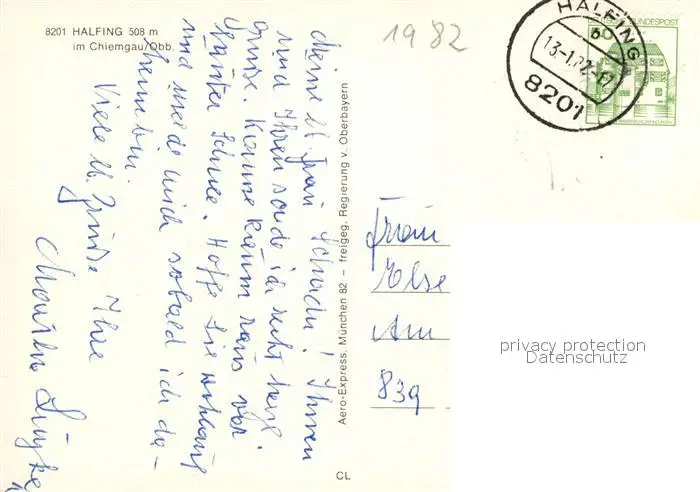 8201 HALFING 508 m
im Chiemgau/Obb.
1982
HALFING
13-1.82-
8201
DEUTSCHE BUNDESPOST
60
Meine lb. Frau ! Ihnen
und Ihren sende ich recht herzl.
Grüße. Kann kaum raus vor
lauter Schnee. Hoffe Sie wohlauf
und melde mich sobald ich da-
heim bin.
Viele lb. Grüße Ihre
Aero-Express, München 82 – freigeg. Regierung v. Oberbayern
Frau
Else
Am
839
CL
privacy protection
Datenschutz